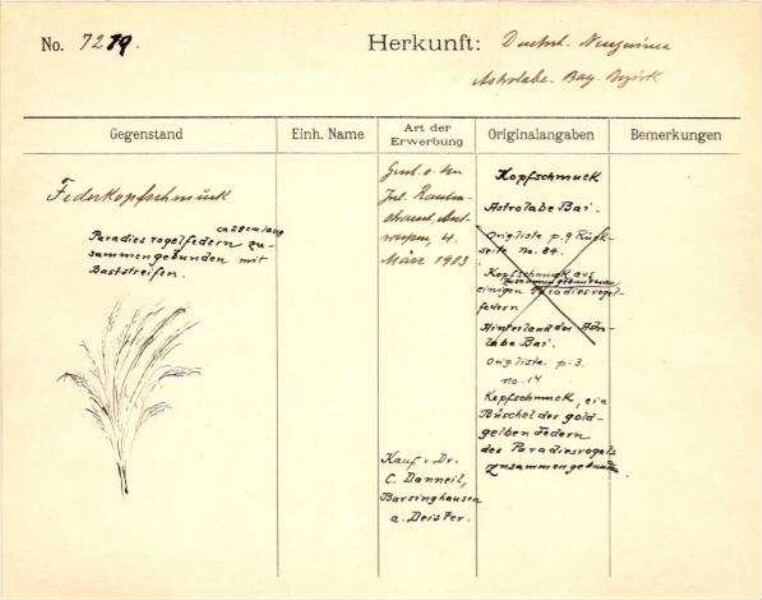 No. 7279.
Herkunft: Deutsch. Neuguinea
Astrolabe-Bay. Bezirk
Gegenstand
Einh. Name
Art der
Erwerbung
Originalangaben
Bemerkungen
Federkopfschmuck
ca 28 cm lang
Paradiesvogelfedern zu-
sammengebunden mit
Baststreifen.
März 1903
Kauf v. Dr.
C. Danneil,
Barsinghausen
a. Deister.
Kopfschmuck
Astrolabe Bai.
Origliste p. 9 Rück-
seite No. 84.
Kopfschmuck aus
zusammengebundenen
einigen Paradiesvogel-
federn
Hinterland der Astro-
labe Bai.
Origliste. p. 3.
no. 14
Kopfschmuck, ein
Büschel der gold-
gelben Federn
des Paradiesvogels
zusammengebunden